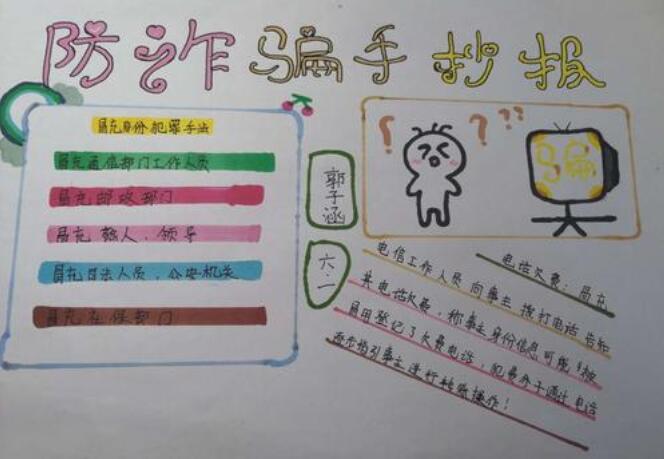 防诈骗手抄报
冒充身份犯罪手法
冒充通信部门工作人员
冒充邮政部门
冒充熟人、领导
冒充司法人员、公安机关
冒充社保部门
郭子涵
六·一
? ? ??
骗
电话欠费：冒充
电信工作人员向事主拨打电话告知
其电话欠费，称事主身份信息可能被
冒用登记了欠费电话，犯罪分子通过电话
逐步指引事主进行转账操作！